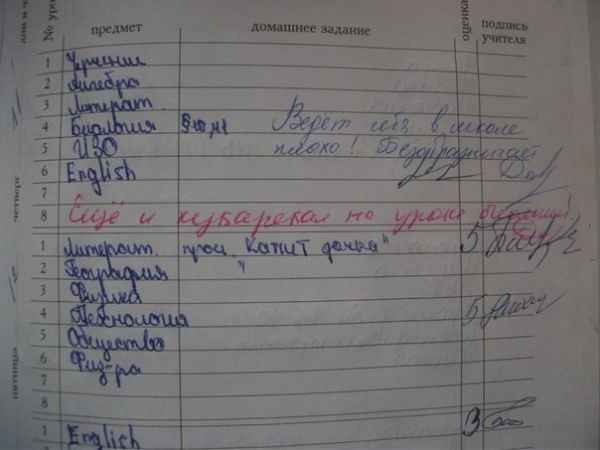 № уро предмет домашнее задание оценка подпись учителя
1 Черчение
2 Алгебра
3 Литерат.
4 Биология §10 Ведёт себя в школе
5 ИЗО плохо! Безобразничает
6 English
7
8 Ещё и кукарекал на уроке
четверг
1 Литерат. проч. "Капит дочка" 5
2 География "
3 Физика
4 Технология 5
5 Общество
6 Физ-ра
7
8
пятница
1 English 3